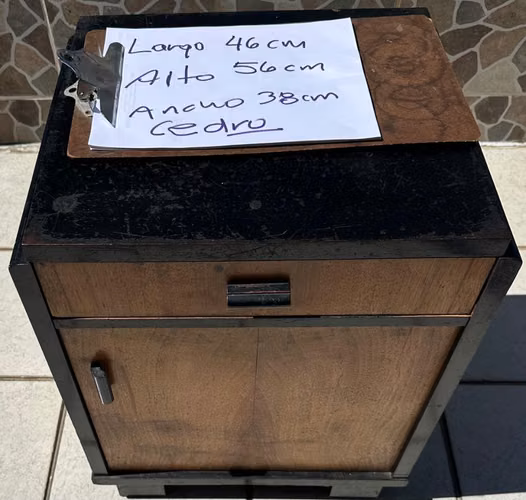 Largo 46 cm
Alto 56 cm
Ancho 38 cm
Cedro